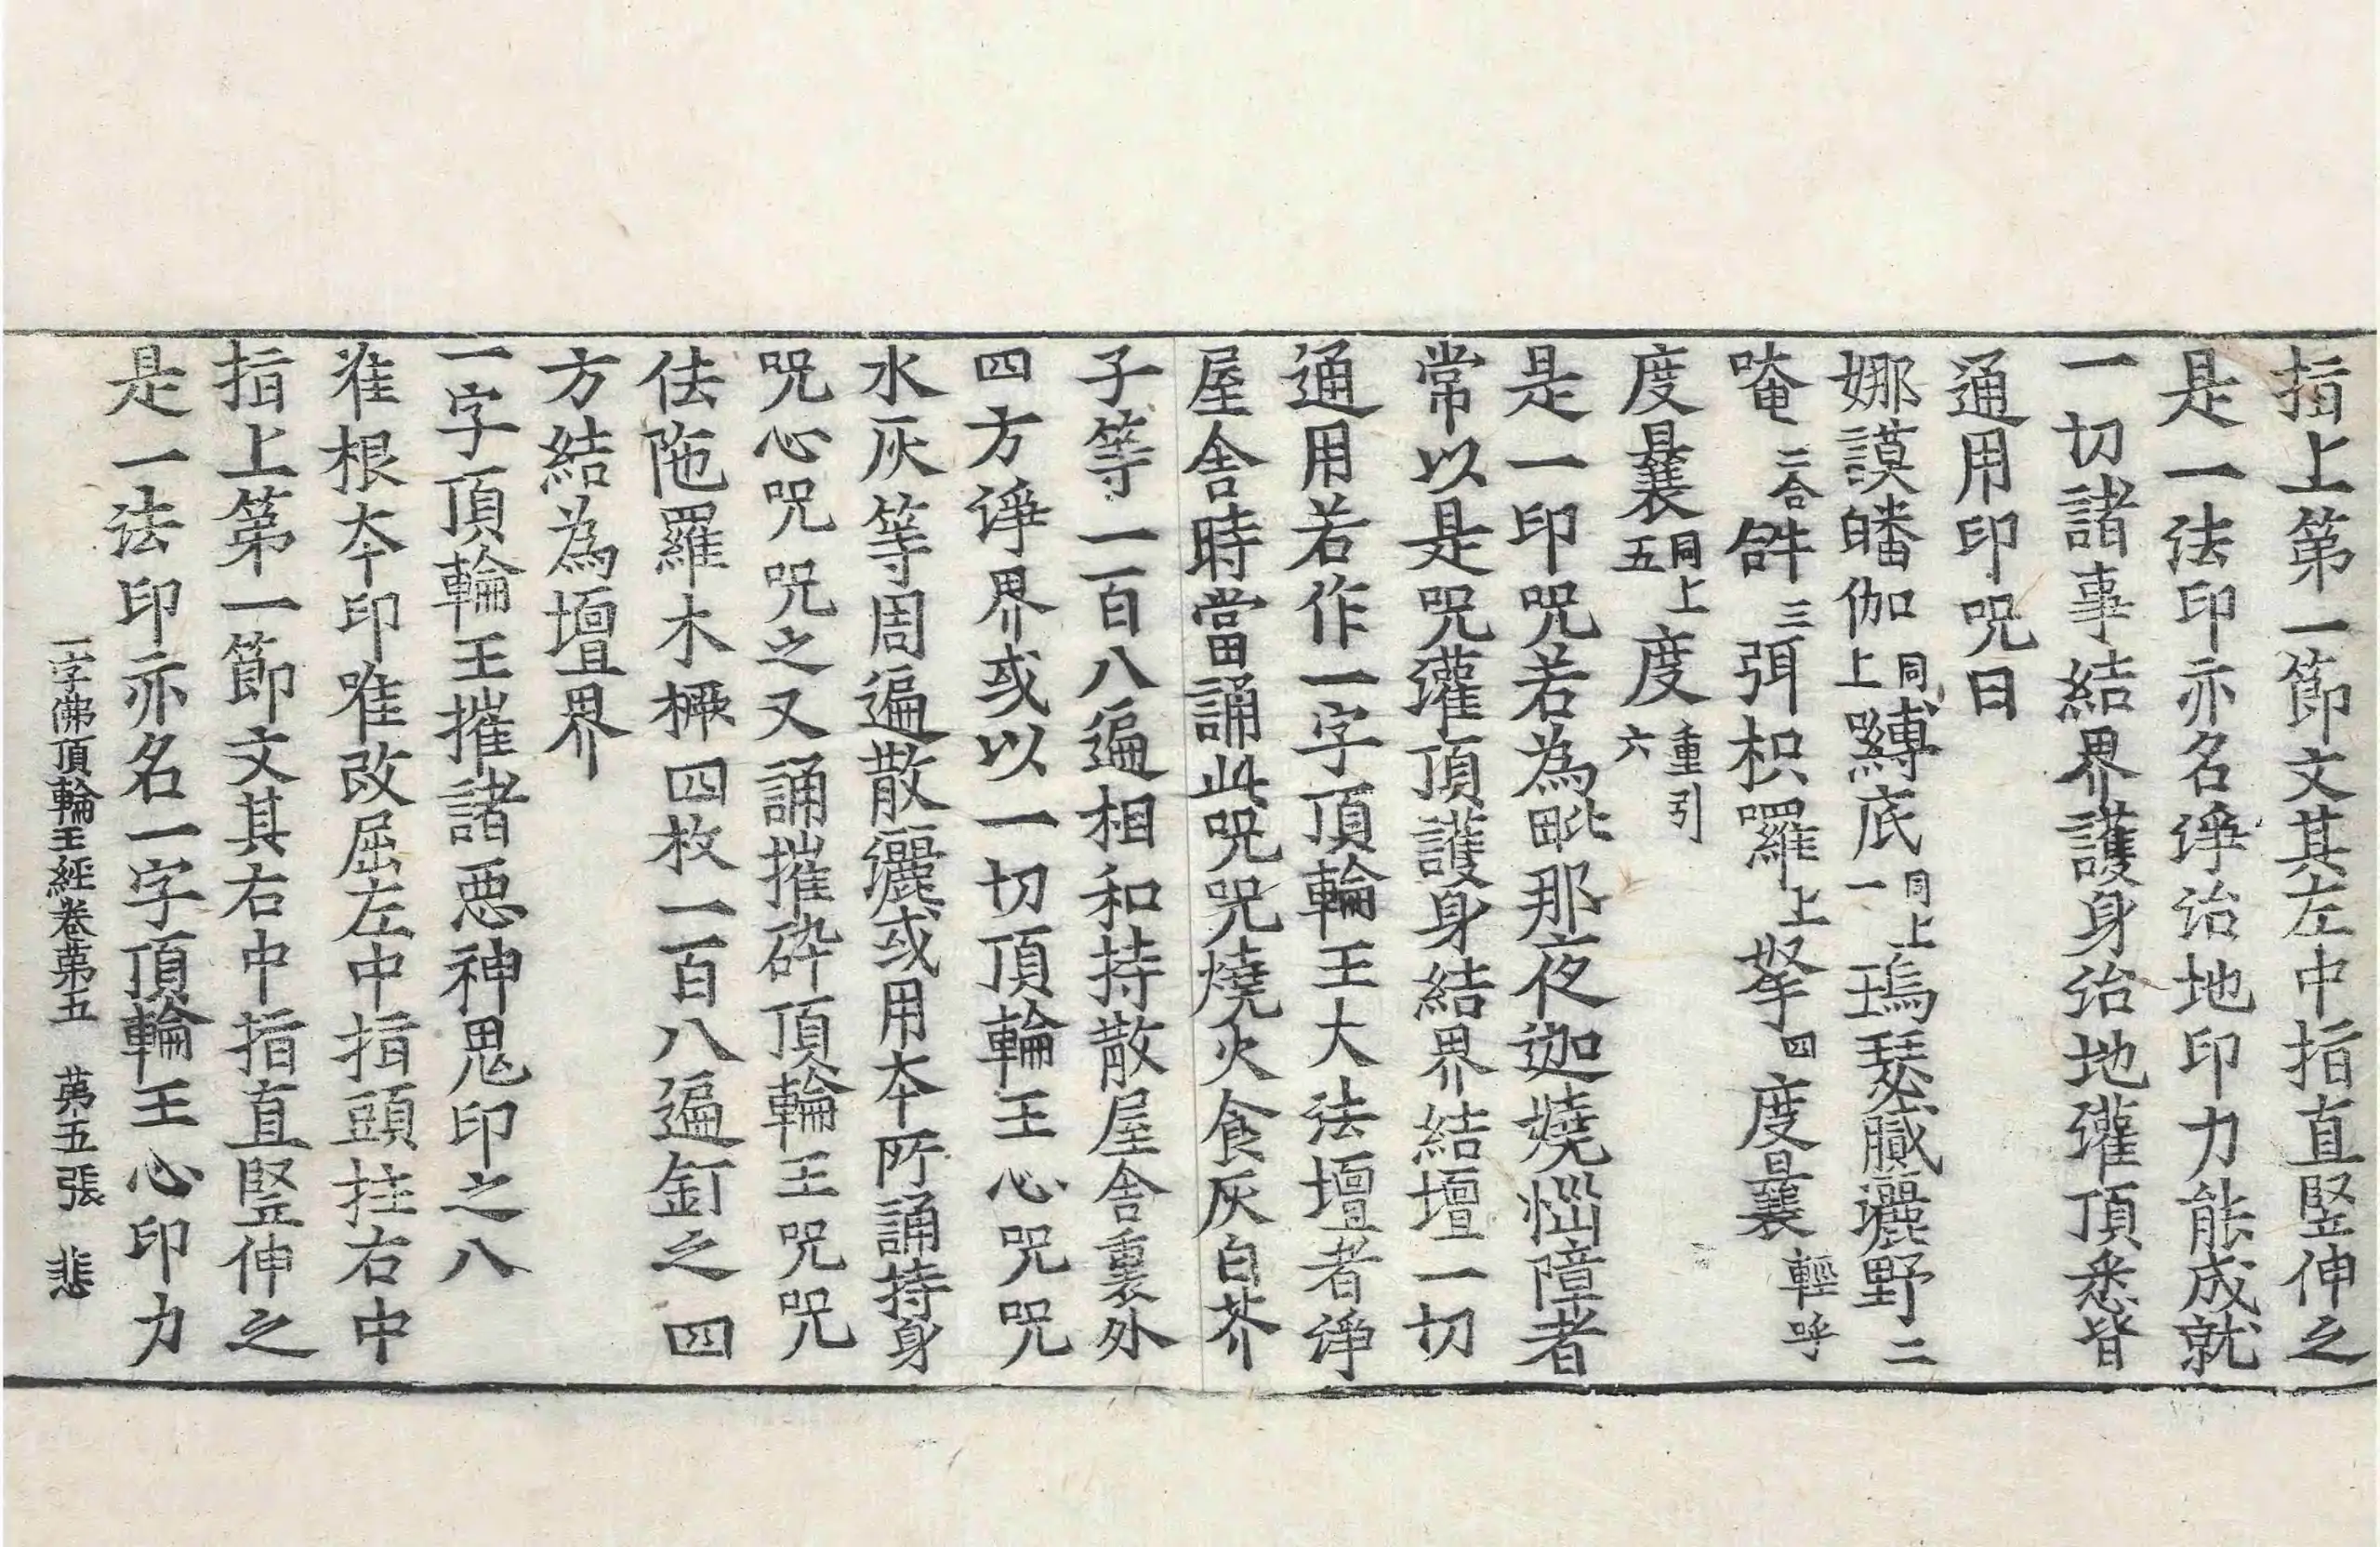 指上第一節文其左中指直竪伸之
是一法印亦名諍治地印力能成就
一切諸事結界護身治地灌頂悉皆
通用印呪曰
娜謨皤伽上同縛底一同上瑦瑟膩灑野二
唵二合𤙖三弭枳羅上拏四度曩輕呼
度曩五同上度六重引
是一印呪若為毗那夜迦嬈惱障者
常以是呪灌頂護身結界結壇一切
通用若作一字頂輪王大法壇者諍
屋舍時當誦此呪呪燒火食灰白芥
子等一百八遍相和持散屋舍裏外
四方諍界或以一切頂輪王心呪呪
水灰等周遍散灑或用本所誦持身
呪心呪呪之又誦摧碎頂輪王呪呪
佉陁羅木橛四枚一百八遍釘之四
方結為壇界
一字頂輪王摧諸惡神鬼印之八
准根本印唯改屈左中指頭拄右中
指上第一節文其右中指直竪伸之
是一法印亦名一字頂輪王心印力
一字佛頂輪王經卷第五 第五張 悲